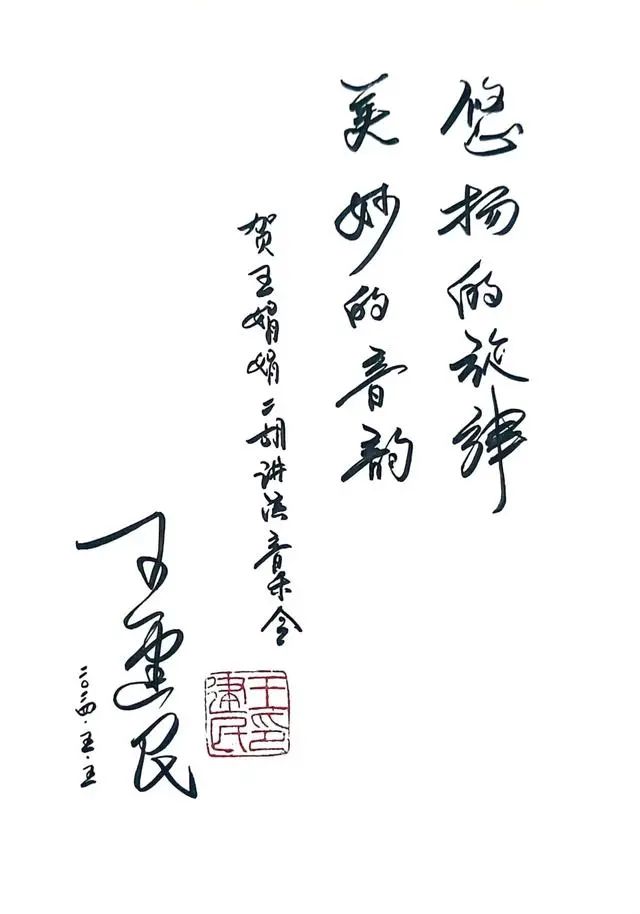 悠扬的旋律
美妙的音韵
贺王娟娟二胡讲演音乐会
王建民
二〇二四·五·五
王建民印